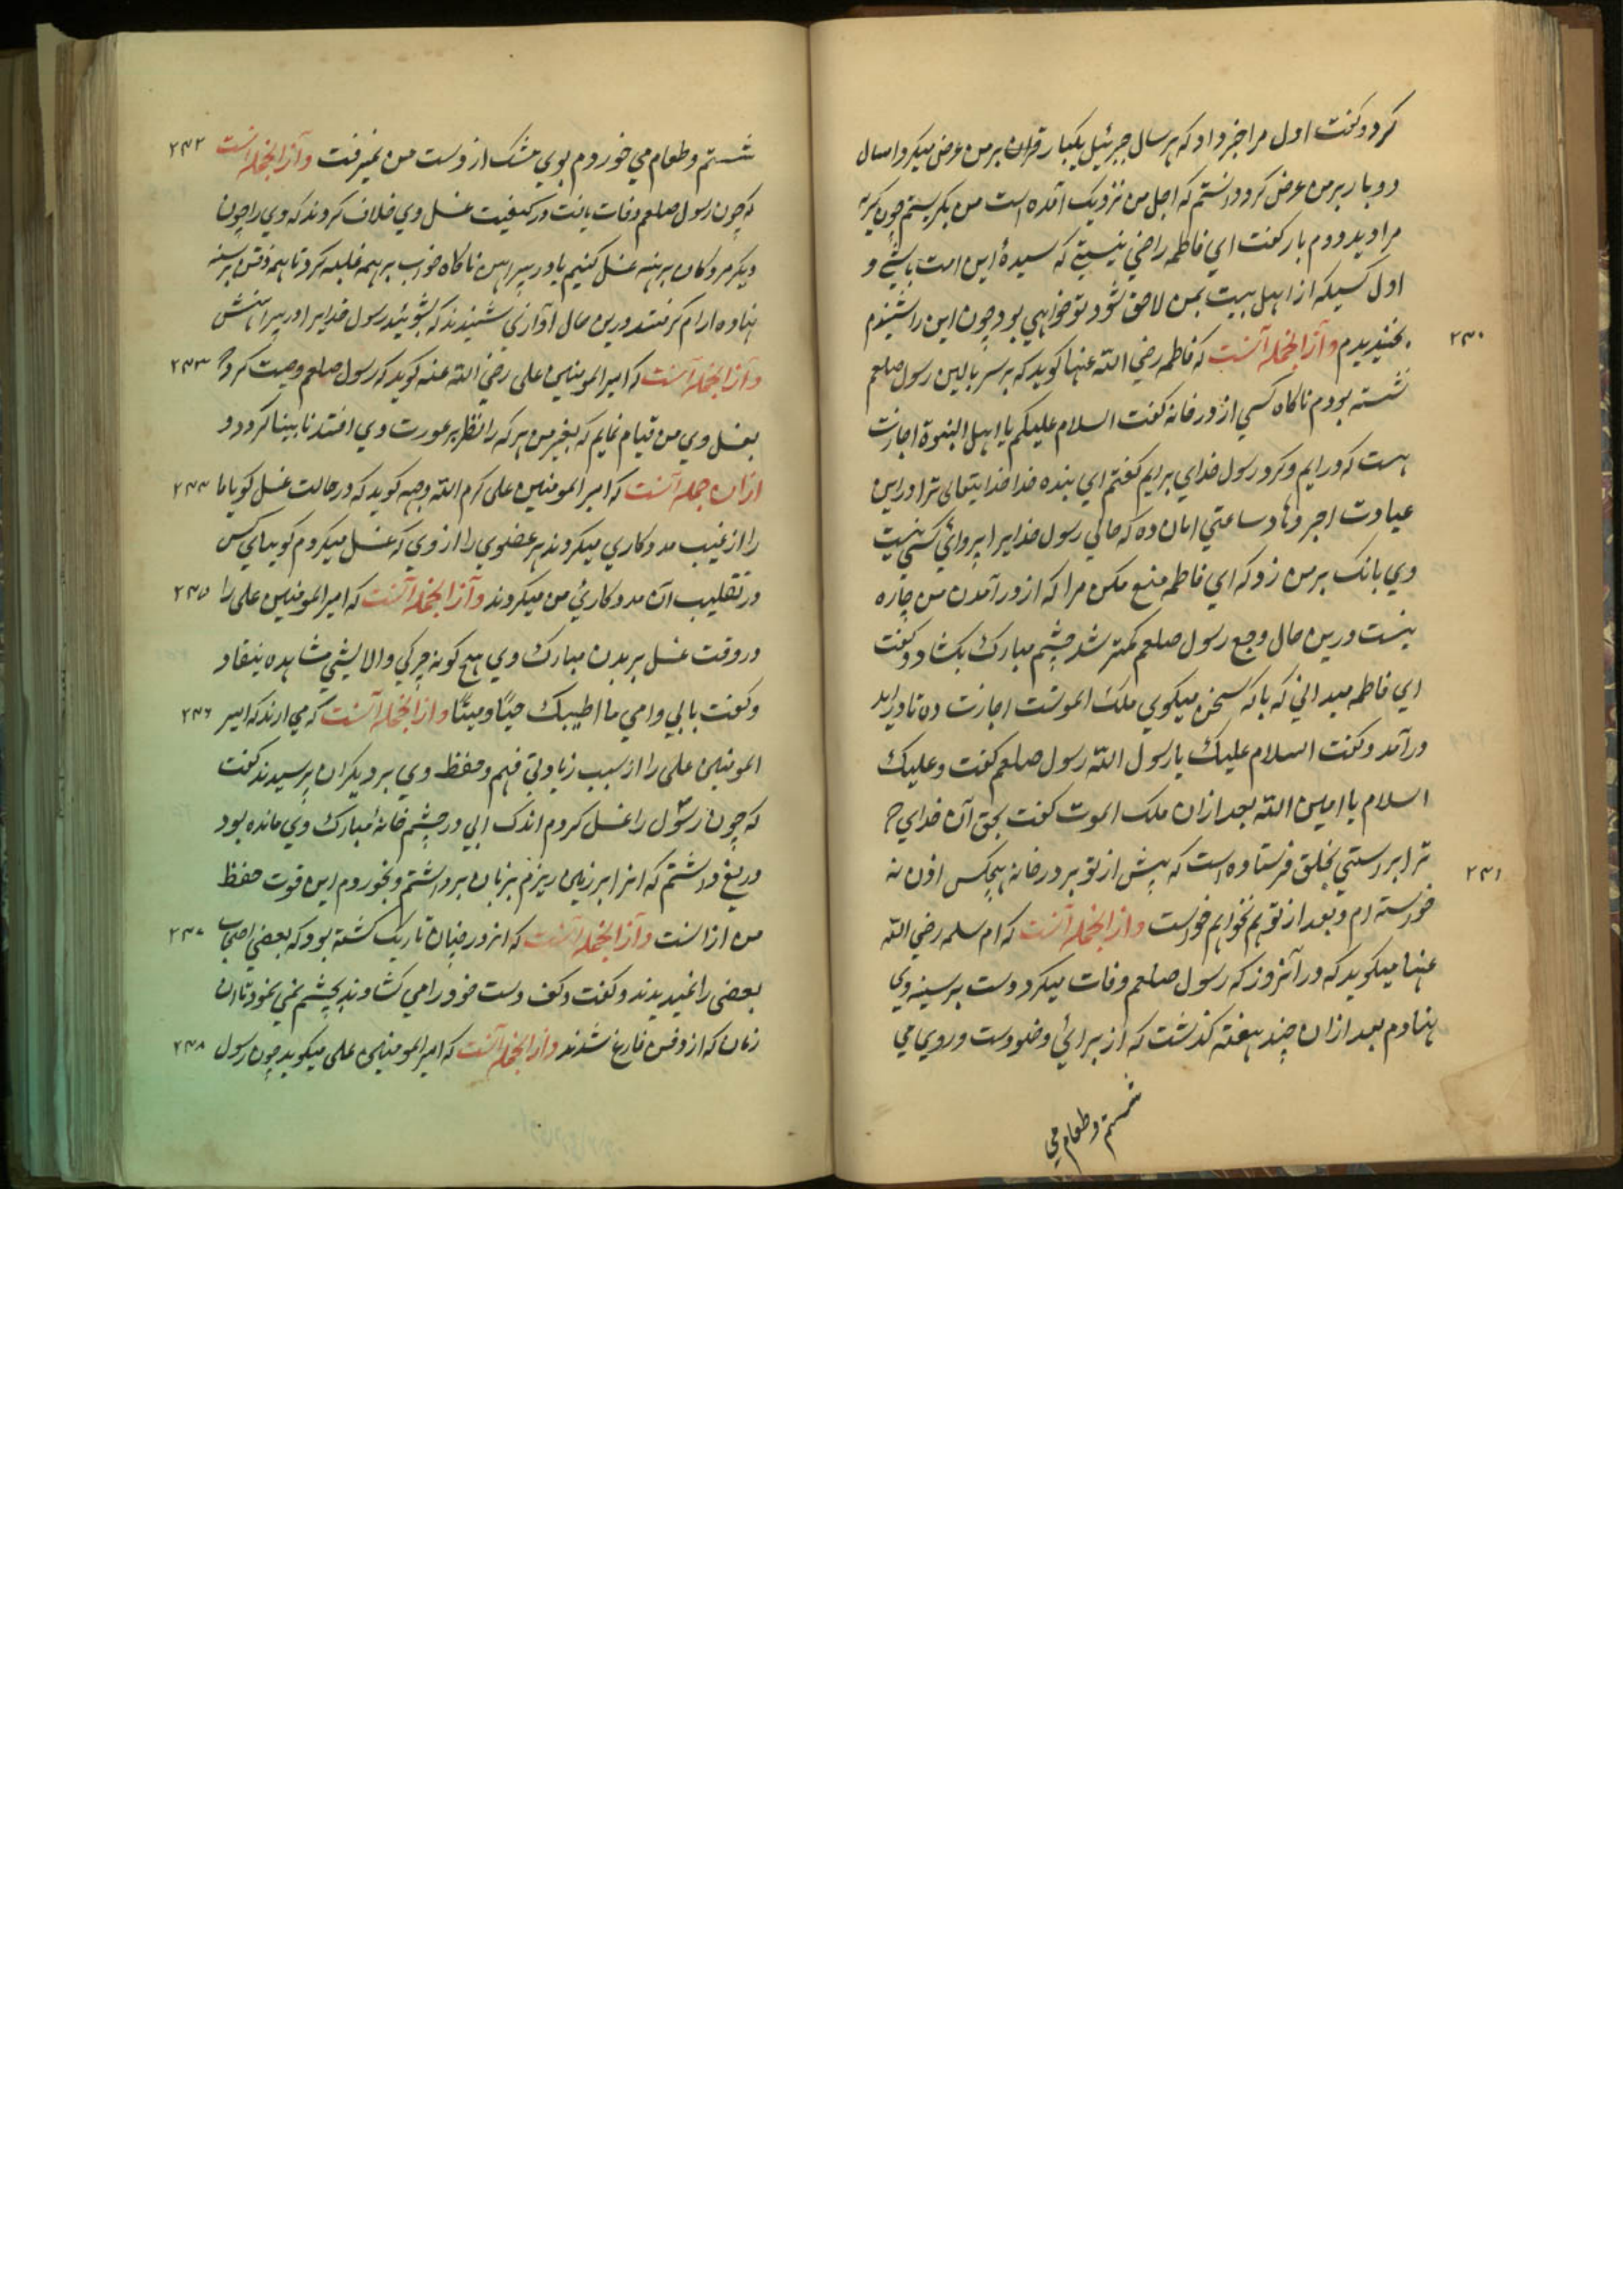 کرد و کفت اول مرا خبر داد که هر سال جبرئیل یکبار قران بر من عرض میکرد و امسال
دو بار بر من عرض کرد دانستم که اجل من نزدیک آمده است من بکریستم چون کریه
مرا دید دوم بار کفت ای فاطمه راضی نیستی که سیدهٔ این امت باشی و
اول کسیکه از اهل بیت بمن لاحق شود تو خواهی بود چون این را شنیدم
۲۴۰ بخندیدم و از انجمله آنست که فاطمه رضی الله عنها کوید که بر سر بالین رسول صلعم
نشسته بودم ناکاه کسی از در خانه کفت السلام علیکم یا اهل النبوة اجازت
هست که در ایم و کرد رسول خدای برایم کفتم ای بنده خدا خدایتعالی ترا در این
عیادت اجر دهاد ساعتی امان ده که حالی رسول خدایرا پروائی کسی نیست
وی بانک بر من زد که ای فاطمه منع مکن مرا که از در آمدن من چاره
نیست درین حال وجع رسول صلعم کمتر شد چشم مبارک بکشاد و کفت
ای فاطمه میدانی که با که سخن میکوی ملک الموتست اجازت ده تا دراید
درآمد و کفت السلام علیک یا رسول الله رسول صلعم کفت و علیک
السلام یا امین الله بعد ازان ملک الموت کفت بحق آن خدای که
۲۴۱ ترا براستی بخلق فرستاده است که پیش از تو بر در خانه هیچکس اذن نه
خواسته ام و بعد از تو هم نخواهم خواست و از انجمله آنست که ام سلمه رضی الله
عنها میکوید که در آنروز که رسول صلعم وفات میکرد دست بر سینه وی
نهادم بعد ازان چند هفته کذشت که از برائی وضو دست و روی می
شستم و طعام می
شستم و طعام می خوردم بوی مشک از دست من نمیرفت و از انجمله آنست ۲۴۲
که چون رسول صلعم وفات یافت در کیفیت غسل وی خلاف کردند که وی را چون
دیکر مردکان برهنه غسل کنیم یا در پیراهن ناکاه خواب بر همه غلبه کرد تا همه ذقن بر سینه
نهاده ارام کرفتند درین حال آوازی شنیدند که بشوئید رسول خدایرا در پیراهنش
و از انجمله آنست که امیر المومنین علی رضی الله عنه کوید که رسول صلعم وصیت کرد که ۲۴۳
بغسل وی من قیام نمایم که بغیر من هر که را نظر بر عورت وی افتد نابینا کردد و
ازان جمله آنست که امیر المومنین علی کرم الله وجهه کوید که در حالت غسل کویا ما ۲۴۴
را از غیب مددکاری میکردند هر عضوی را از وی که غسل میکردم کوبیای کس
در تقلیب آن مددکارئ من میکردند و از انجمله آنست که امیر المومنین علی را ۲۴۵
در وقت غسل بر بدن مبارک وی هیچ کونه چرکی و الایشی مشاهده نیفتاد
و کفت بابی و امی ما اطیبک حیًا و میتًا و از انجمله آنست که می ارند که امیر ۲۴۶
المومنین علی را از سبب زیادتی فهم و حفظ وی بر دیکران پرسیدند کفت
که چون رسول را غسل کردم اندک ابی در چشم خانهٔ مبارک وی مانده بود
دریغ داشتم که انرا بر زمین ریزم بزبان برداشتم و بخوردم این قوت حفظ
من ازانست و از انجمله آنست که انروز چنان تاریک کشته بود که بعضی اصحاب ۲۴۷
بعضی را نمیدیدند و کفت و کف دست خود را می کشادند بچشم نمی نمود تا ان
زمان که از دفن فارغ شدند و از انجمله آنست که امیر المومنین علی میکوید چون رسول ۲۴۸